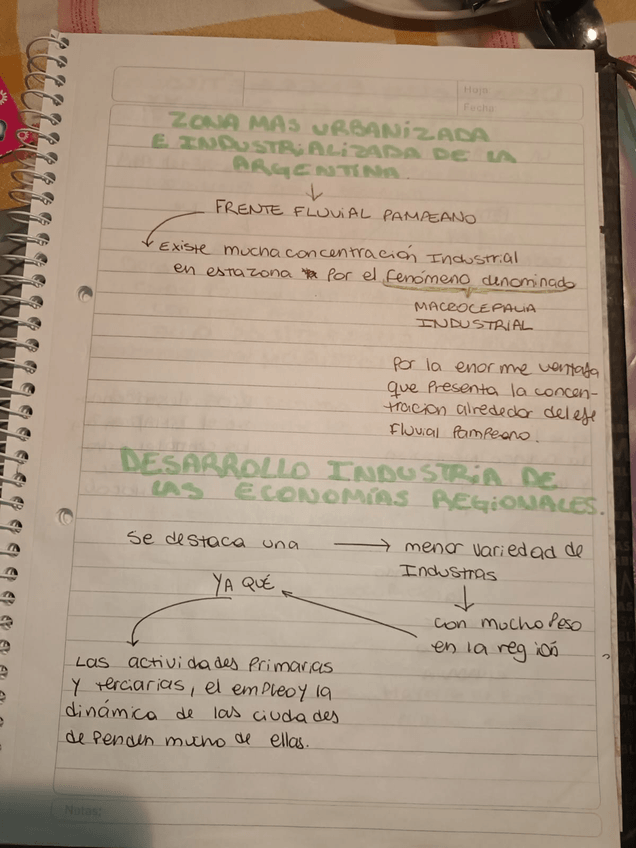 Hoja
Fecha
ZONA MAS URBANIZADA
E INDUSTRIALIZADA DE LA
ARGENTINA.
FRENTE FLUViAL PAMPEANO
Existe mucha concentración Industrial
en esta zona Por el fenómeno denominado
MACROCEPALIA
INDUSTRIAL
Por la enorme ventaja
que Presenta la concen-
tración alrededor del eje
Fluvial Pampeano.
DESARROLLO INDUSTRiA DE
LAS ECONOMÍAS REGiONALES.
Se destaca una → menor variedad de
Industras
YA QUÉ
con mucho Peso
en la región
Las actividades Primarias
y terciarias, el empleo y la
dinámica de las ciudades
dependen mucho de ellas.
Notas: